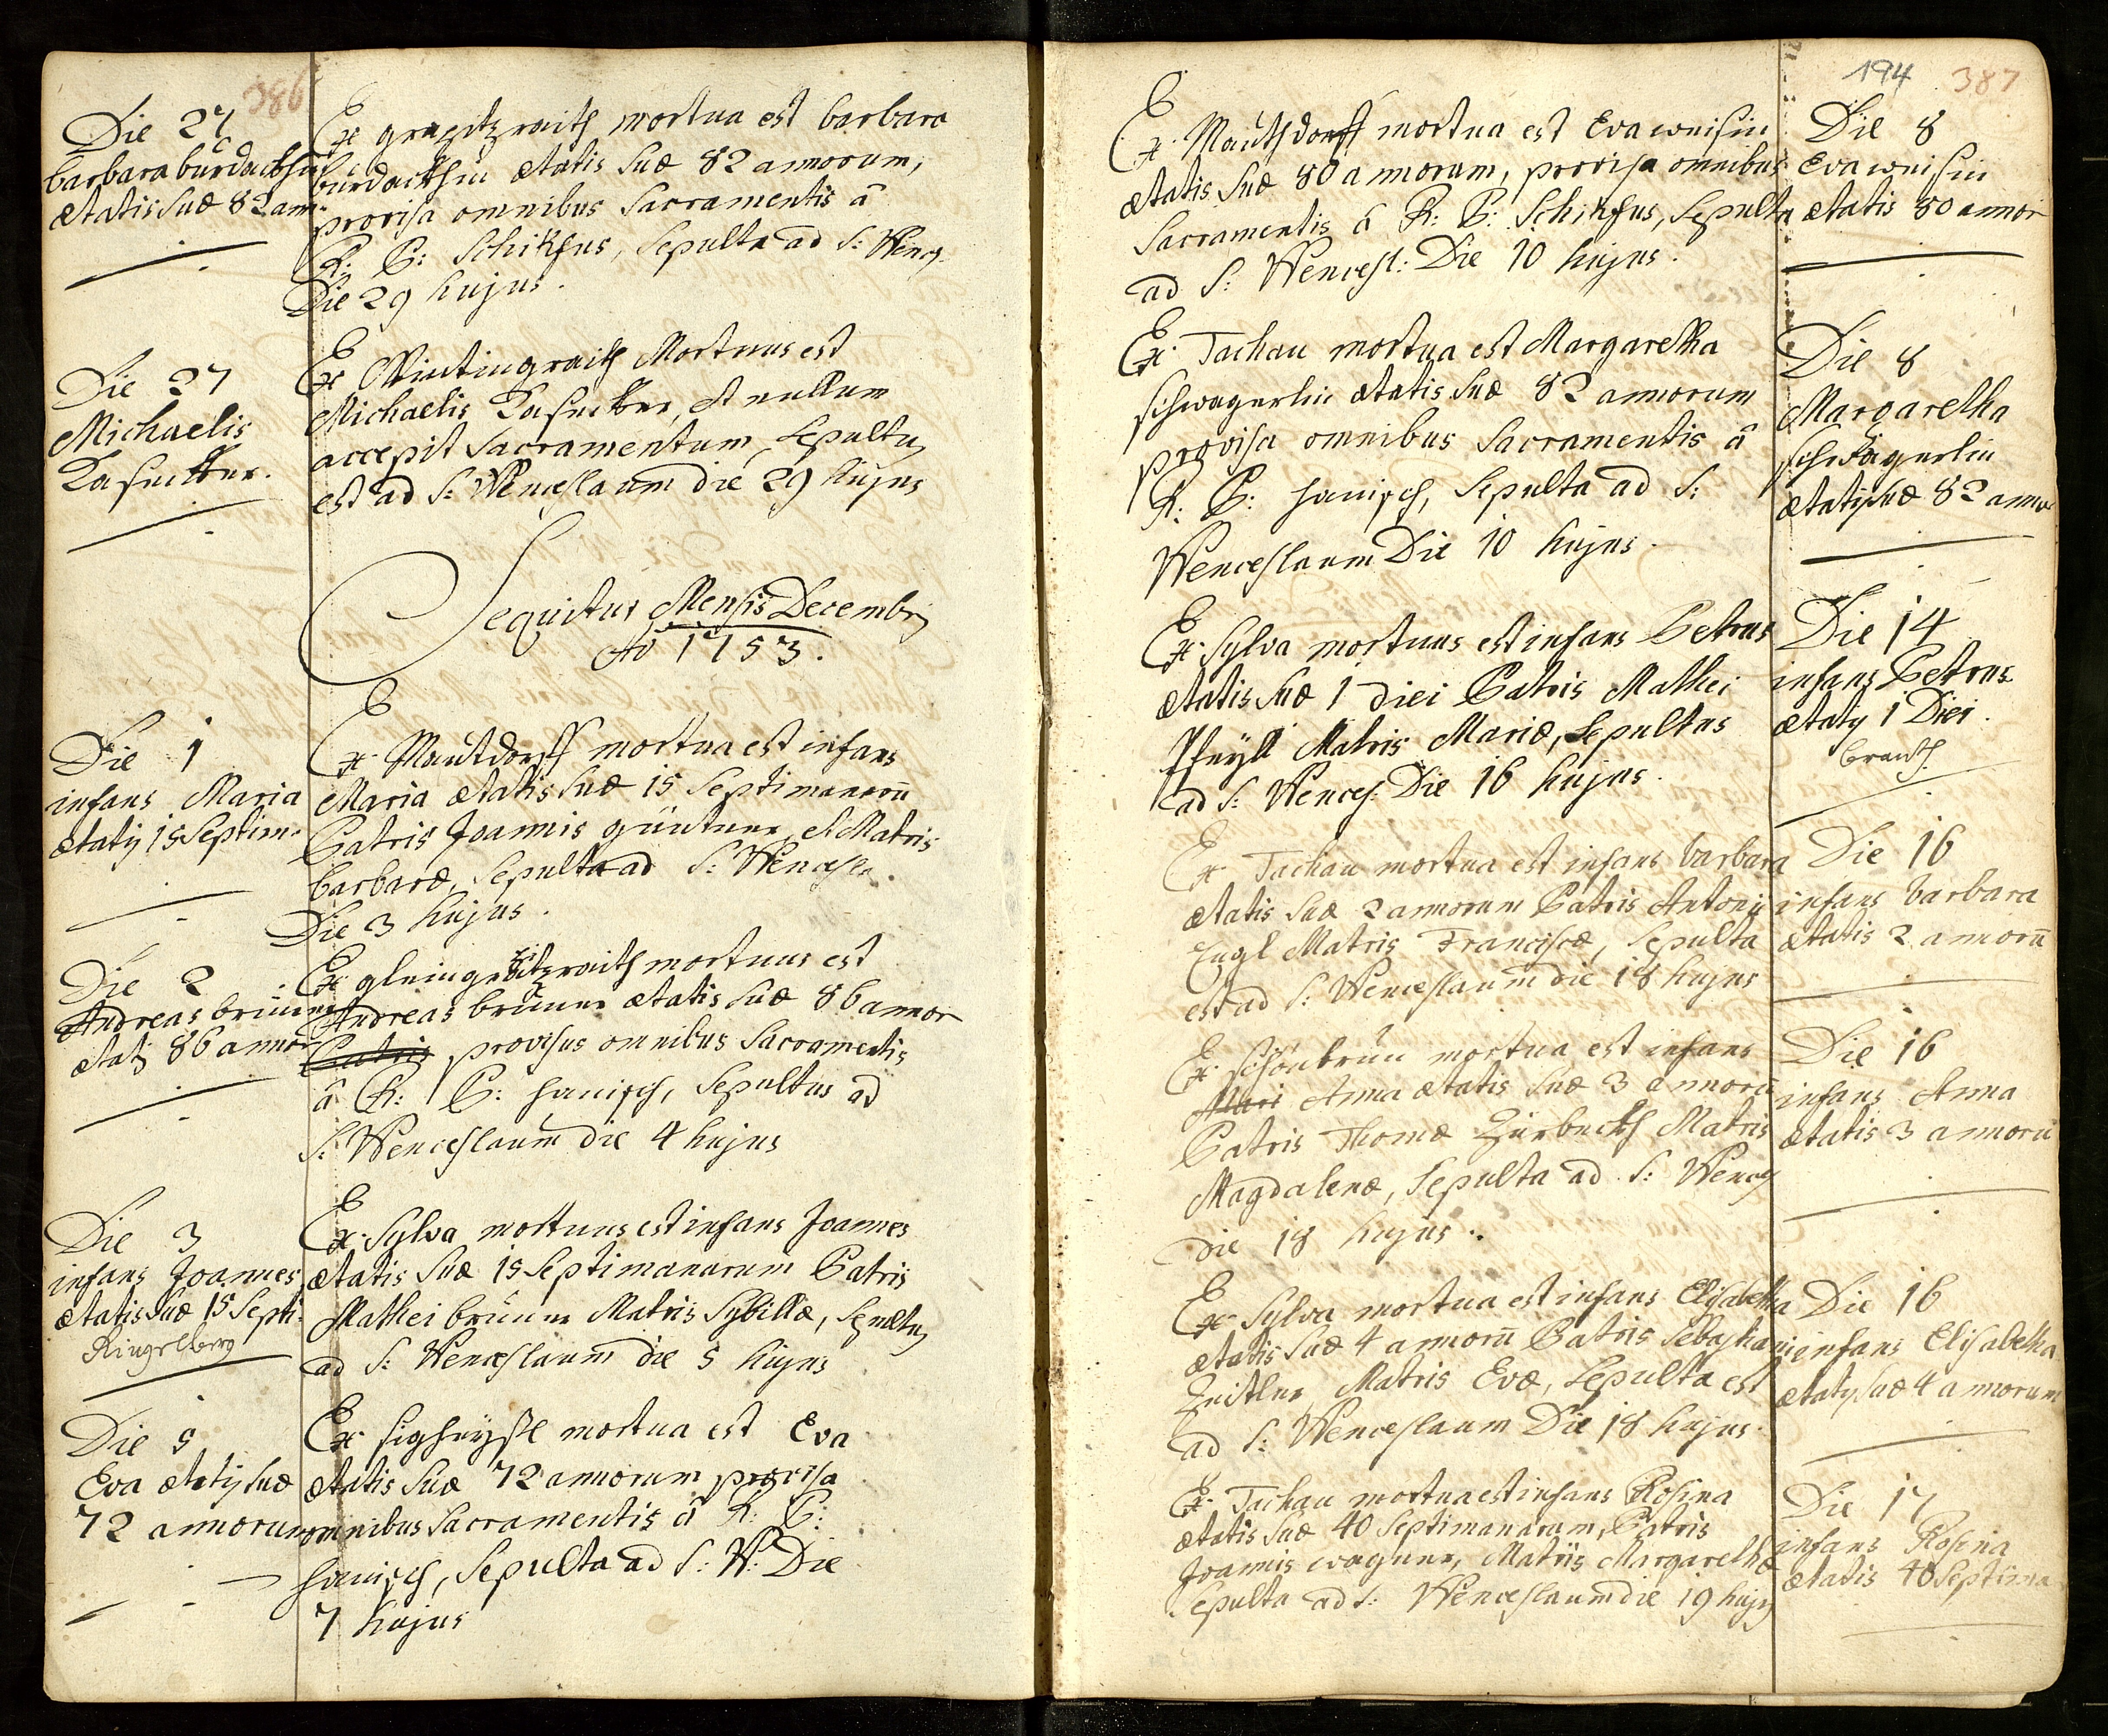 386
Die 27
barbara bürdackhin
ætatis suæ 82 ann:
Ex grapitzraith mortua est barbara
bürdackhin ætatis suæ 82 annorum,
provisa omnibus Sacramentis â
R: P: Schikfus, Sepulta ad S: Wenc.
Die 29 hujus.
Die 27
Michaelis
Ex Wintingraith Mortuus est
Michaelis et nullum
accepit Sacramentum, Sepultus
est ad S: Wenceslaum die 29 hujus
Sequitur Mensis Decembris
Ao 1753.
Die 1
infans Maria
ætatis 15 Septim:
Ex Mautdorff mortua est infans
Maria ætatis suæ 15 Septimanarũ
Patris Joannis güntner, et Matris
barbaræ, Sepulta ad S: Wencesl.
Die 3 hujus.
Die 2
Andreas brünner
ætatis 86 annor
Ex mortuus est
Andreas brünner ætatis suæ 86 annor
Patris provisus omnibus Sacramentis
â R: P: hanisch, Sepultus ad
S: Wenceslaum die 4 hujus
Die 3
infans Joannes
ætatis suæ 15 Septi:
Ringelberg
Ex Sylva mortuus est infans Joannes
ætatis suæ 15 Septimanarum Patris
Mathei brünner Matris Sybillæ, Sepultus
ad S: Wenceslaum die 5 hujus
Die 5
Eva ætatis suæ
72 annorum
Ex mortua est Eva
ætatis suæ 72 annorum provisa
omnibus Sacramentis â R: P:
hanisch, Sepulta ad S: W: Die
7 hujus
194 387
Ex Mauthdorff mortua est Eva weisin
ætatis suæ 80 annorum, provisa omnibus
Sacramentis â R: P: Schikfus, Sepulta
ad S: Wencesl: Die 10 hujus.
Die 8
Eva weisin
ætatis 80 annor
Ex Tachau mortua est Margaretha
schwagerlin ætatis suæ 82 annorum
provisa omnibus Sacramentis â
R: P: hanisch, Sepulta ad S:
Wenceslaum Die 10 hujus.
Die 8
Margaretha
schwagerlin
ætatis suæ 82 annor
Ex Sylva mortuus est infans Petrus
ætatis suæ 1 diei Patris Mathei
Pfeyll Matris Mariæ, Sepultus
ad S: Wences: Die 16 hujus.
Die 14
infans Petrus
ætatis 1 Diei.
brand
Ex Tachau mortua est infans barbara
ætatis suæ 2 annorum Patris Antonij
Engl Matris Franciscæ, Sepulta
est ad S: Wenceslaum die 18 hujus
Die 16
infans barbara
ætatis 2 annorũ
Ex schönbrün mortua est infans
Mari Anna ætatis suæ 3 annorũ
Patris Thomæ Zürbeckh Matris
Magdalenæ, Sepulta ad S: Wences
die 18 hujus.
Die 16
infans Anna
ætatis 3 annorũ
Ex Sylva mortua est infans Elisabetha
ætatis suæ 4 annorũ Patris Sebastiani
Zeitler Matris Evæ, Sepulta est
ad S: Wenceslaum Die 18 hujus.
Die 16
infans Elisabetha
ætatis suæ 4 annorum
Ex Tachau mortua est infans Rosina
ætatis suæ 40 Septimanarum, Patris
Joannis wagner, Matris Margarethæ
Sepulta ad S: Wenceslaum die 19 hujus
Die 17
infans Rosina
ætatis 40 Septima